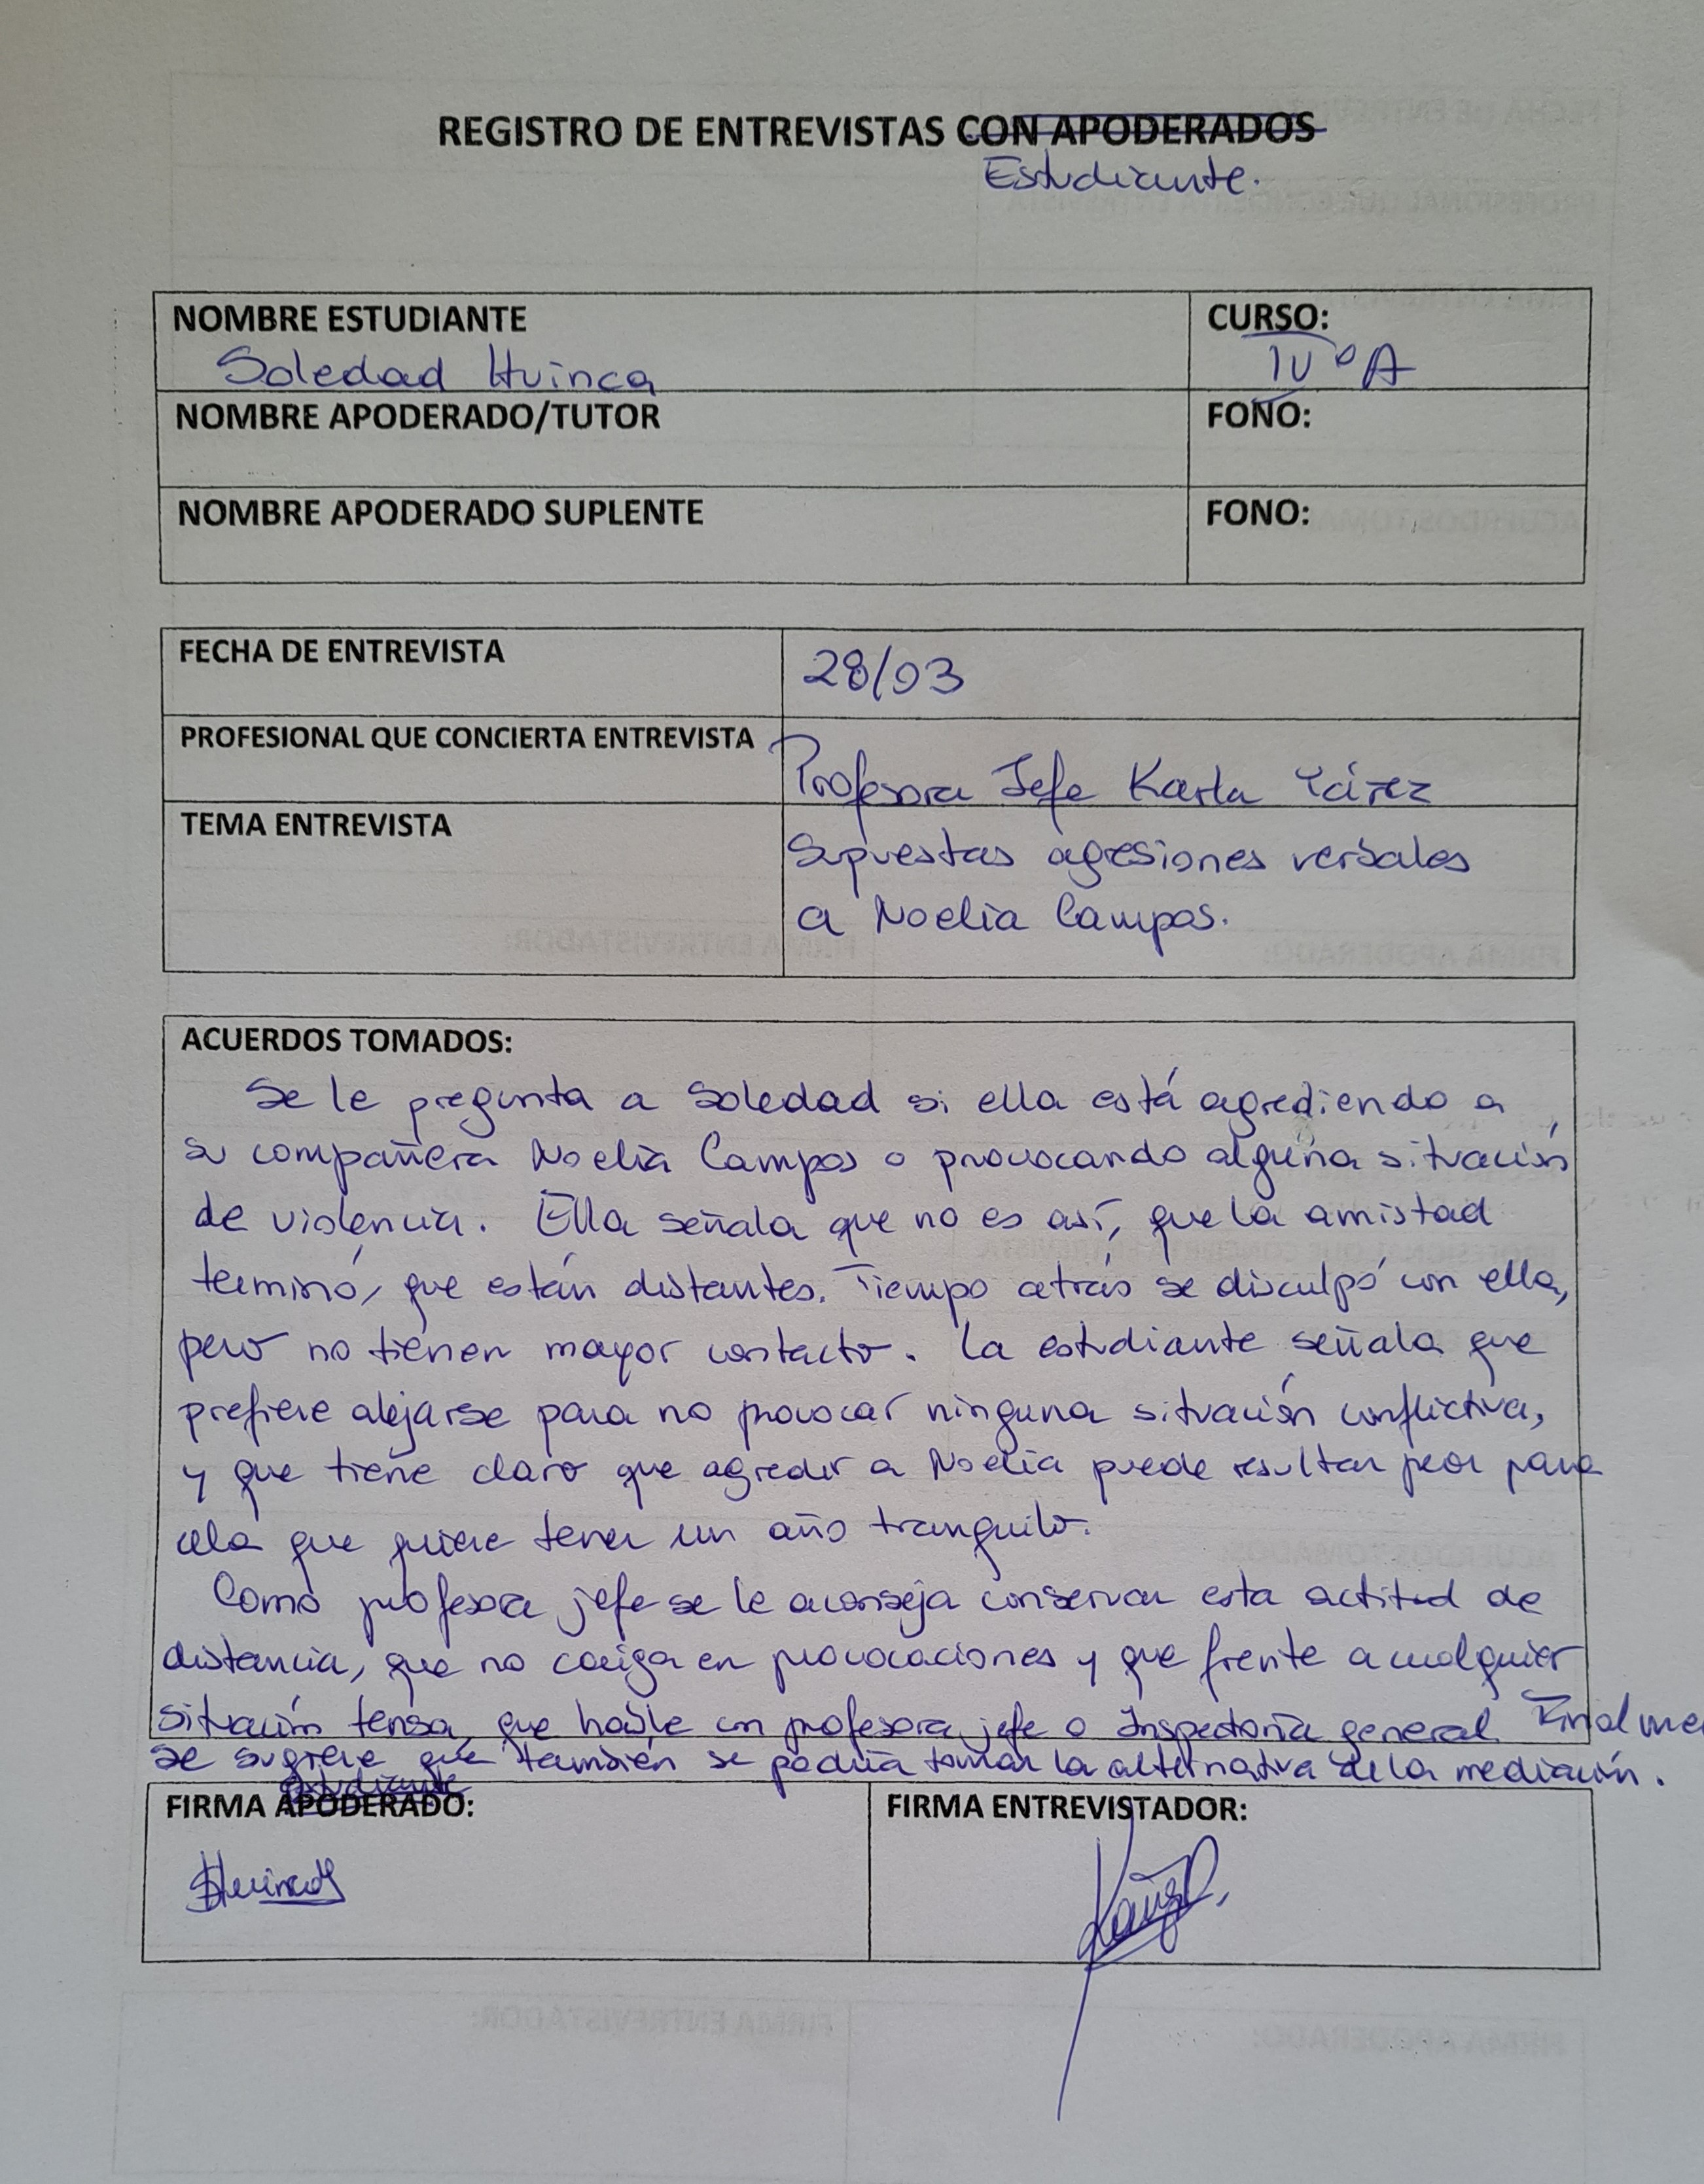 REGISTRO DE ENTREVISTAS CON APODERADOS
Estudiante.
NOMBRE ESTUDIANTE
Soledad Huinca
CURSO:
IV°A
NOMBRE APODERADO/TUTOR
FONO:
NOMBRE APODERADO SUPLENTE
FONO:
FECHA DE ENTREVISTA
28/03
PROFESIONAL QUE CONCIERTA ENTREVISTA
Profesora Jefe Karla Yáñez
TEMA ENTREVISTA
Supuestas agresiones verbales
a Noelia Campos.
ACUERDOS TOMADOS:
Se le pregunta a Soledad si ella está agrediendo a
su compañera Noelia Campos o provocando alguna situación
de violencia. Ella señala que no es así, que la amistad
terminó, que están distantes. Tiempo atrás se disculpó con ella,
pero no tienen mayor contacto. La estudiante señala que
prefiere alejarse para no provocar ninguna situación conflictiva,
y que tiene claro que agredir a Noelia puede resultar peor para
ella que quiere tener un año tranquilo.
Como profesora jefe se le aconseja conservar esta actitud de
distancia, que no caiga en provocaciones y que frente a cualquier
situación tensa, que hable con profesora jefe o Inspectoría general. Finalme
se sugiere que también se podría tomar la alternativa de la mediación.
Estudiante
FIRMA APODERADO:
SHuinca
FIRMA ENTREVISTADOR: